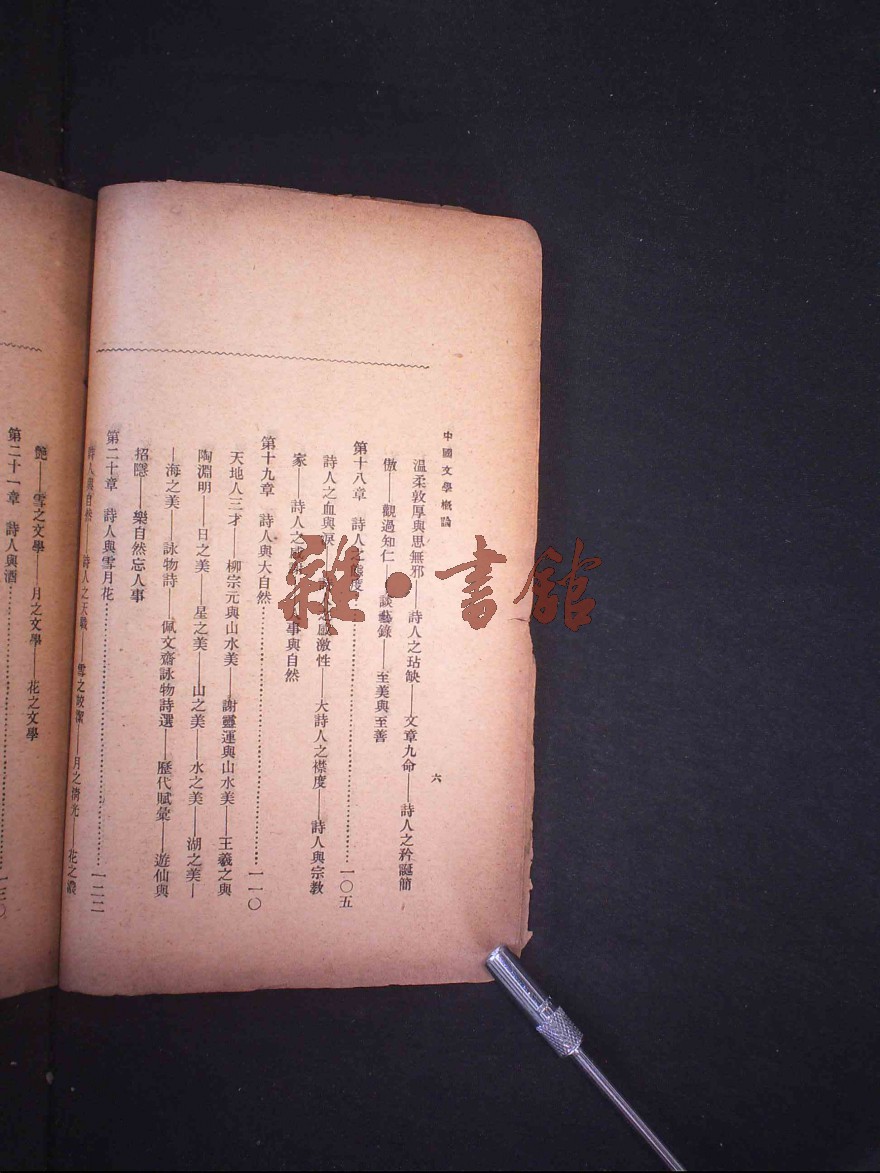 中國文學概論
六
溫柔敦厚與思無邪——詩人之玷缺——文章九命——詩人之矜誕簡
傲——觀過知仁——談藝錄——至美與至善
第十八章 詩人之態度……一〇五
詩人之血與淚——感激性——大詩人之襟度——詩人與宗教
家——詩人之 事與自然
第十九章 詩人與大自然……一一〇
天地人三才——柳宗元與山水美——謝靈運與山水美——王羲之與
陶淵明——日之美——星之美——山之美——水之美——湖之美—
—海之美——詠物詩——佩文齋詠物詩選——歷代賦彙——遊仙與
招隱——樂自然忘人事
第二十章 詩人與雪月花……一二二
詩人與自然——詩人之天職——雪之皎潔——月之清光——花之濃
艷——雪之文學——月之文學——花之文學
第二十一章 詩人與酒……一三〇
雜·書館